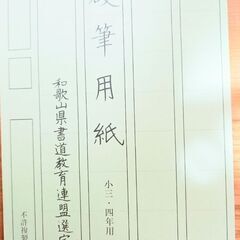 硬筆用紙
小三・四年用
和歌山県書道教育連盟選定
不許複製